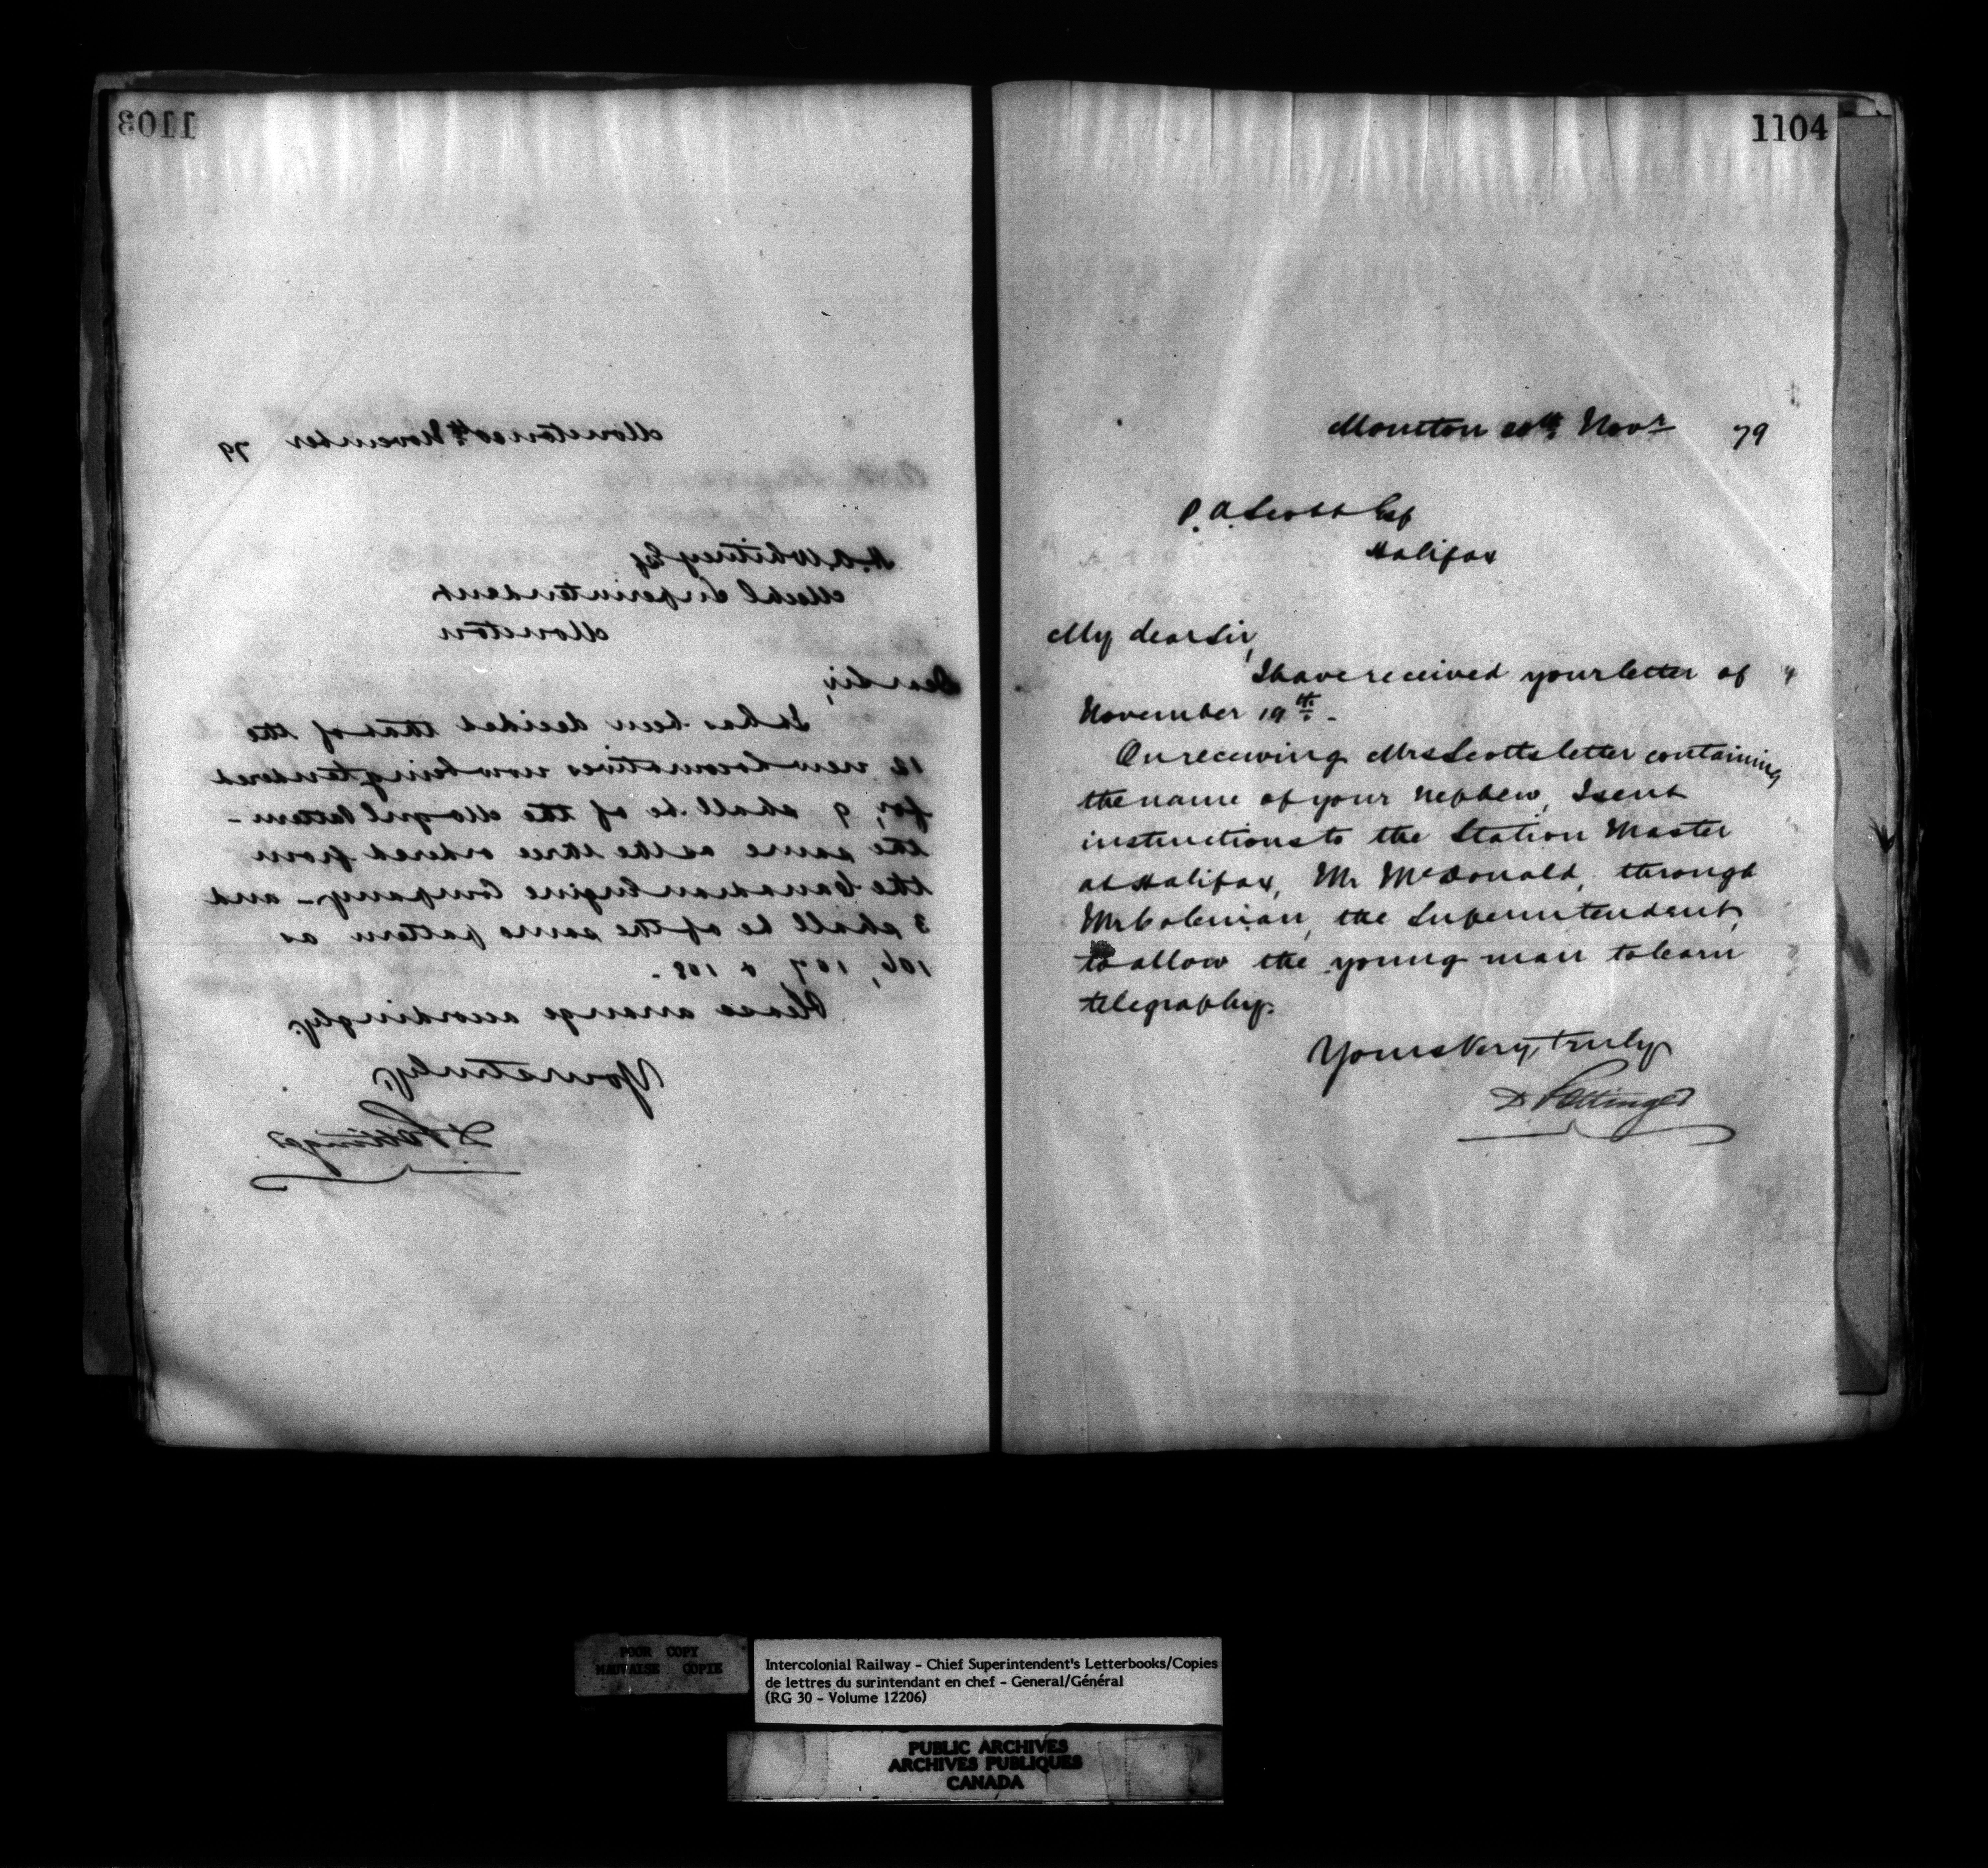 1103
Moncton 20th November 79
H. A. Whitney Esq
Mechl Superintendent
Moncton
Dear Sir,
It has been decided that of the
12 new locomotives now being tendered
for, 9 shall be of the Mogul Pattern -
the same as the three ordered from
the Canadian Engine Company - and
3 shall be of the same pattern as
106, 107 & 108. -
Please arrange accordingly.
Yours truly,
D Pottinger
1104
Moncton 20th Novr 79
P. A. Scott Esq
Halifax
My dear Sir,
I have received your letter of
November 19th. -
On receiving Mrs Scotts letter containing
the name of your nephew, I sent
instructions to the Station Master
at Halifax, Mr McDonald, through
Mr Coleman, the Superintendent,
to allow the young man to learn
telegraphy.
Yours very truly
D Pottinger
POOR COPY
MAUVAISE COPIE
Intercolonial Railway - Chief Superintendent's Letterbooks/Copies
de lettres du surintendant en chef - General/Général
(RG 30 - Volume 12206)
PUBLIC ARCHIVES
ARCHIVES PUBLIQUES
CANADA